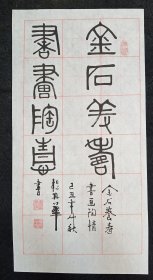 金石養壽
書畫陶情
金石養寿
書画陶情
己丑年秋
華
書